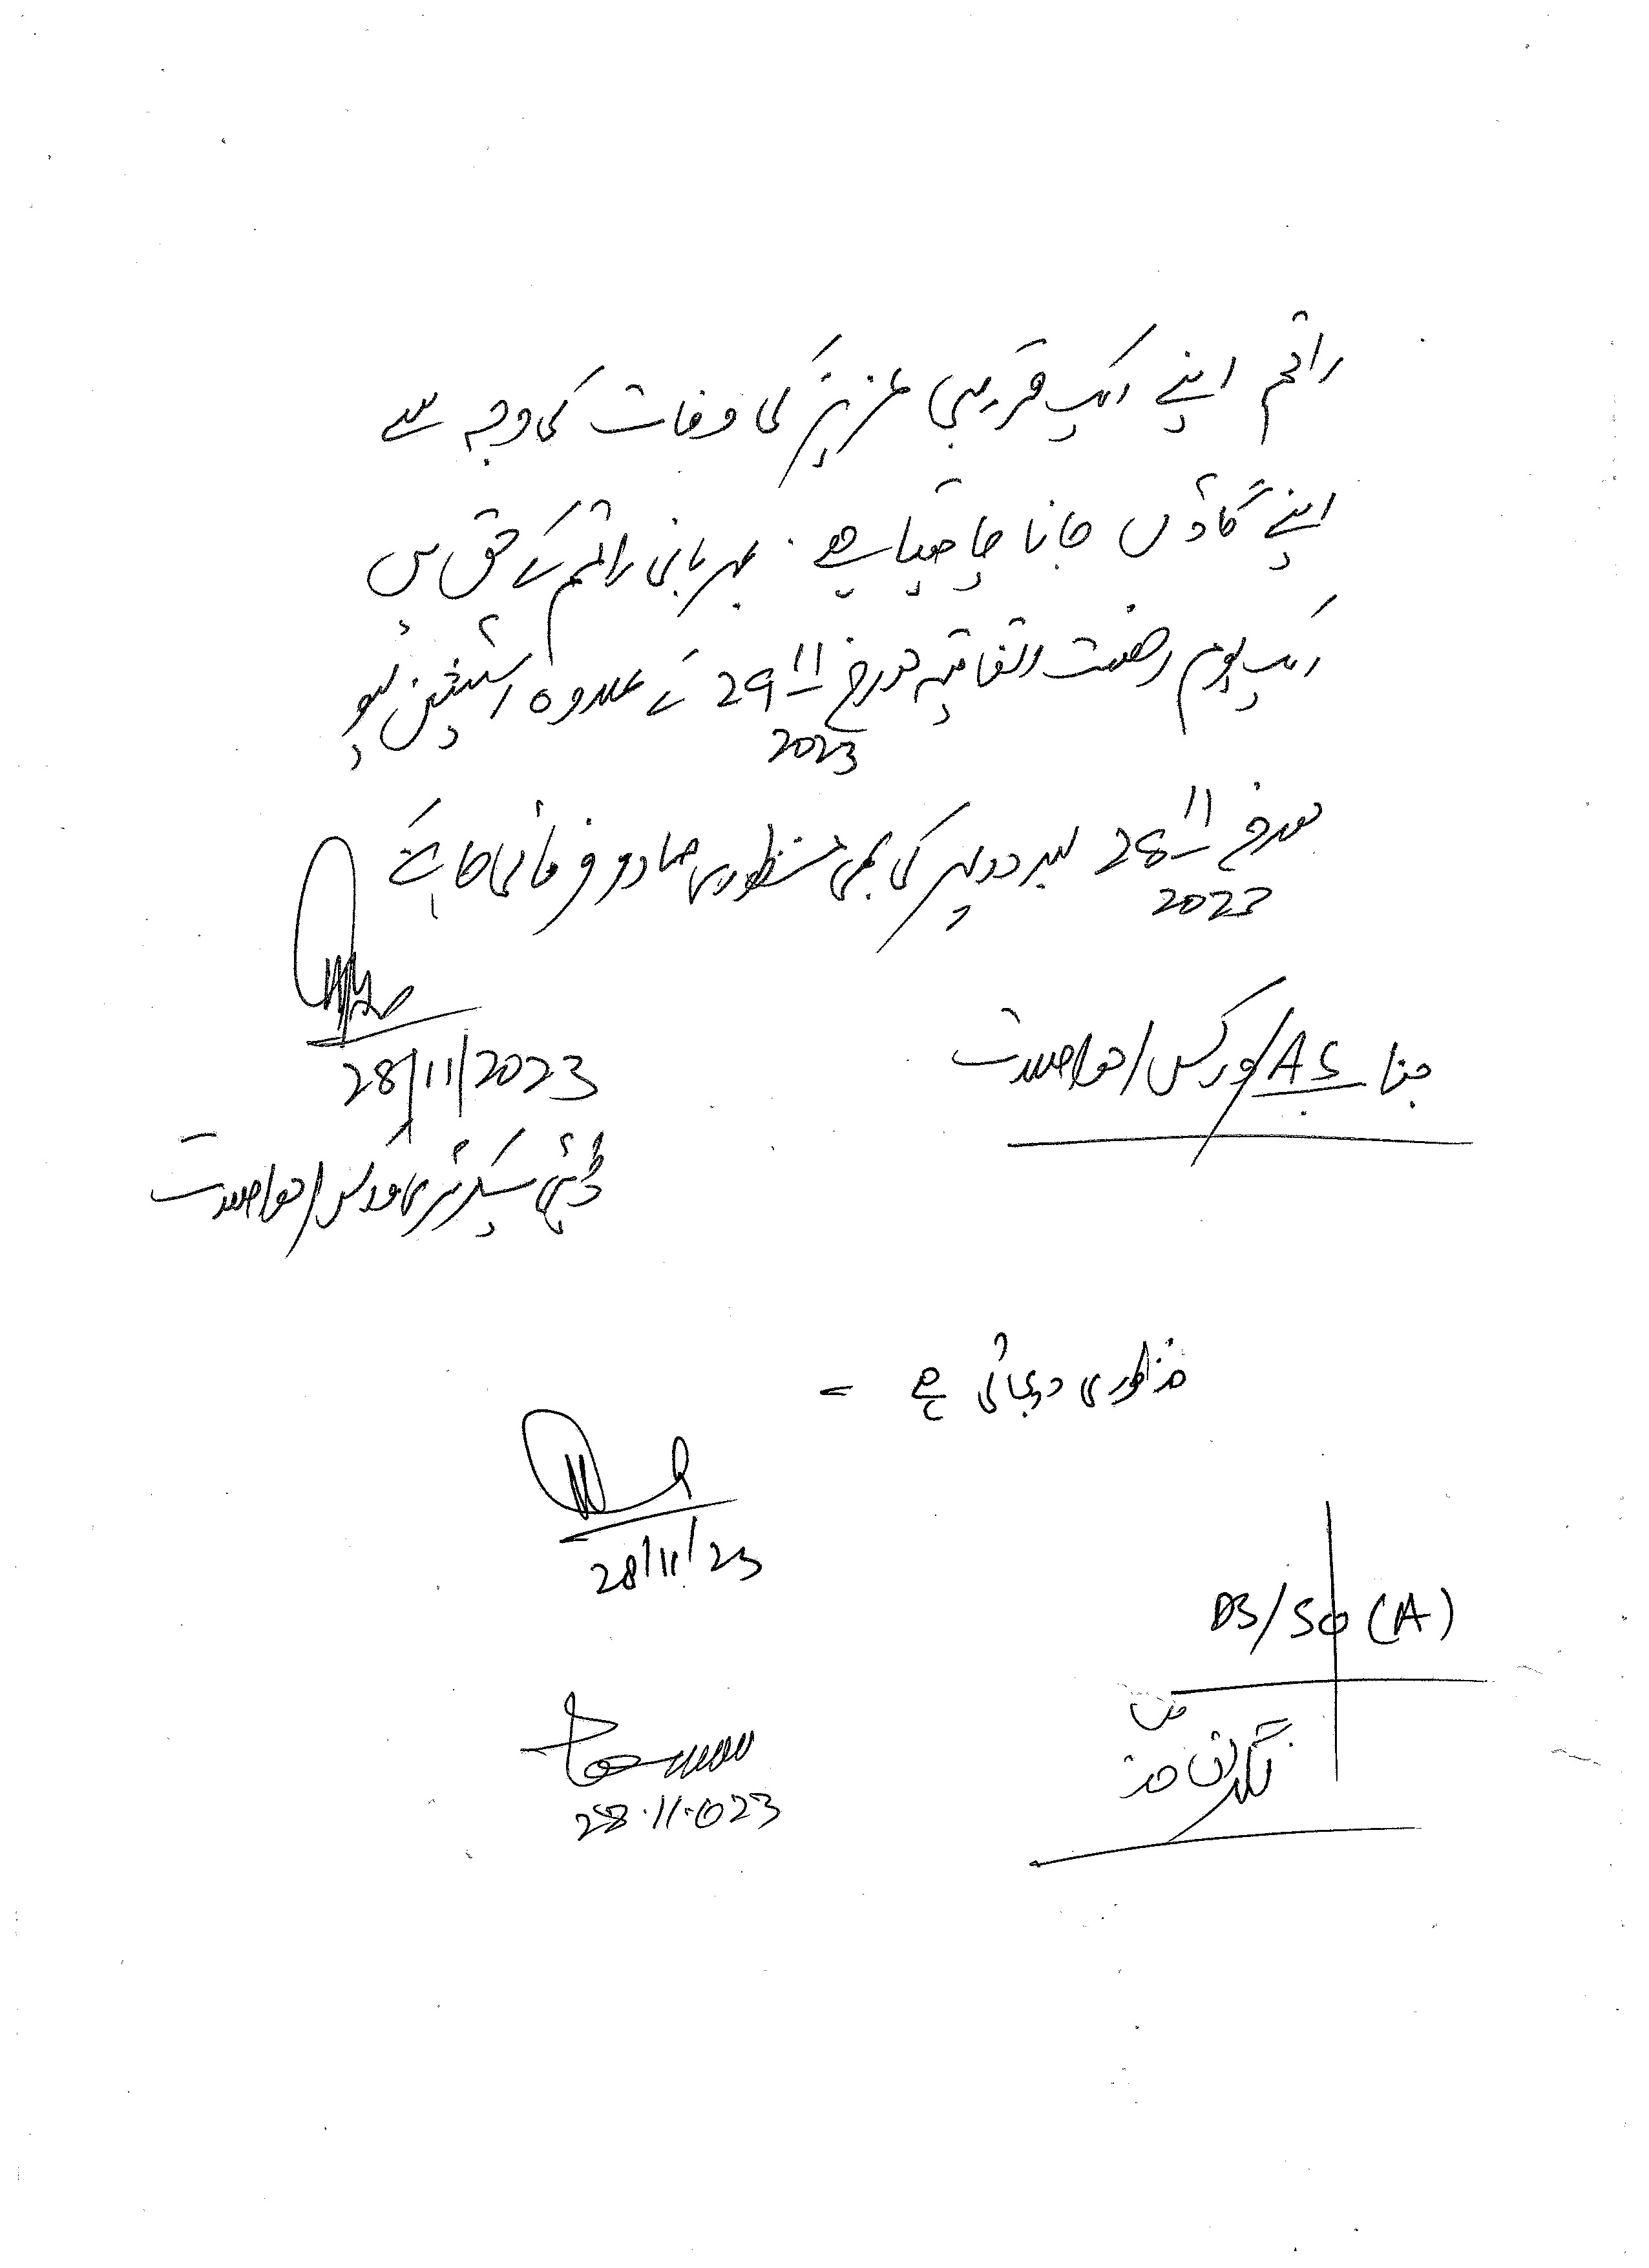 راقم اپنے ایک قریبی عزیز کی وفات کی وجہ سے
اپنے گاؤں جانا چاہتا ہے۔ مہربانی راقم کے حق میں
ایک یوم رخصت اتفاقیہ مورخہ 29/11/2023 کے علاوہ اسٹیشن لیو
مورخہ 28/11/2023 بعد دوپہر کی بھی منظوری صادر فرمائی جائے
28/11/2023
جناب AS ورکس/مواصلات
ڈپٹی سیکرٹری ورکس/مواصلات
منظوری دی جاتی ہے =
28/11/23
DS/SO (A)
28.11.023